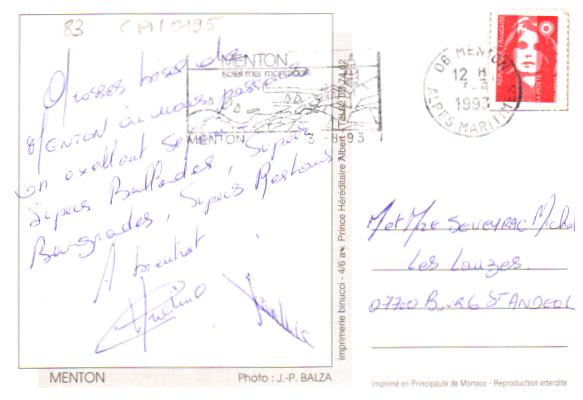 83 CA10195
Grosses bises de
MENTON où nous passons
un exellent séjour
Supers Ballades, Supers
Baignades, Supers Restaus
A bientôt
MENTON
soleil mer montagne
MENTON 3-8-93
06 MENTON
12 H
1993
ALPES MARITIMES
RÉPUBLIQUE FRANÇAISE
LA POSTE
M et Mme SEVEYRAC Michel
Les Lauzes
07700 BOURG St ANDEOL
imprimerie binucci - 4/6 av. Prince Héréditaire Albert - Tél. 92 05 74 62
MENTON
Photo : J.-P. BALZA
Imprimé en Principauté de Monaco - Reproduction interdite